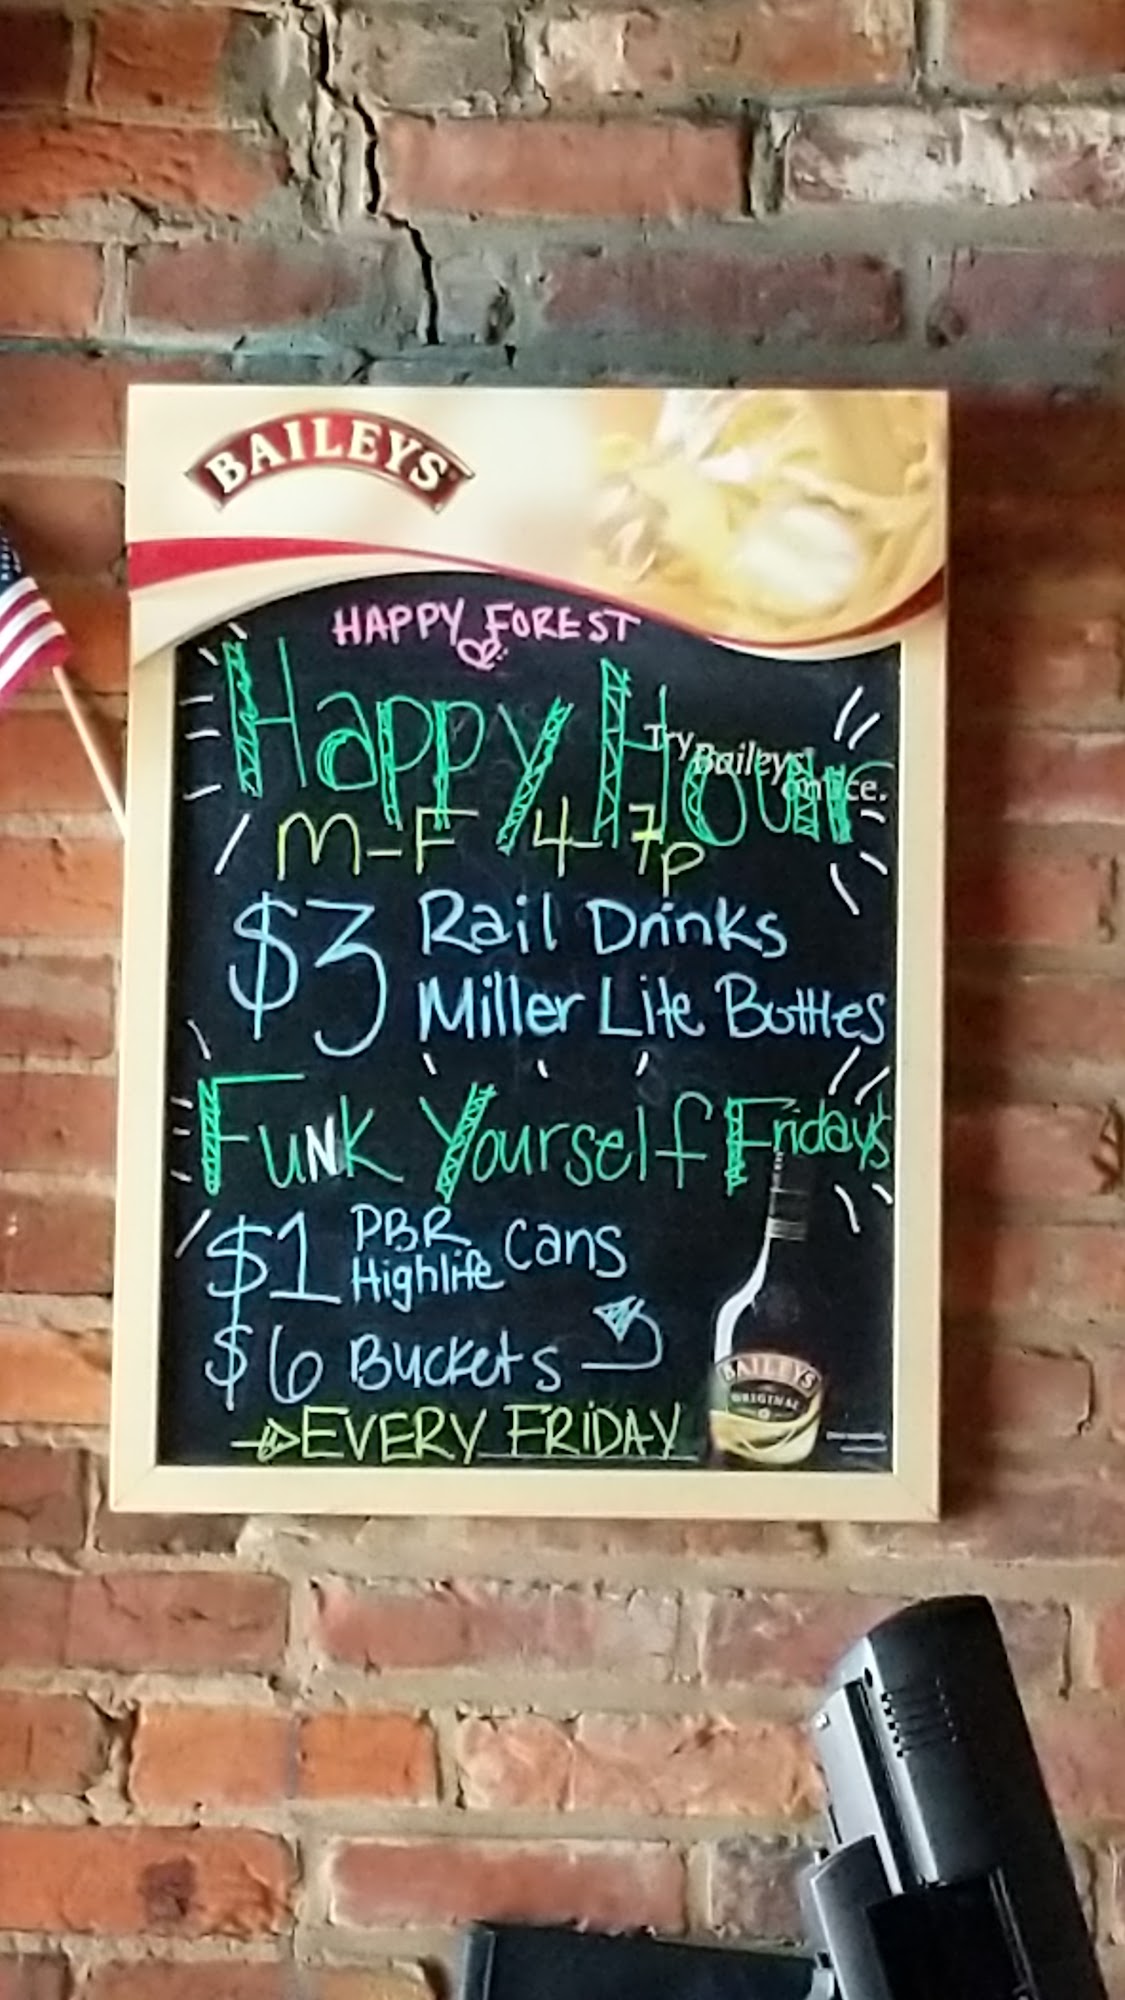 BAILEYS
HAPPY FOREST
Happy Hour
Try Baileys on ice.
M-F 4-7p
$3 Rail Drinks
Miller Lite Bottles
Funk Yourself Fridays
$1 PBR Highlife Cans
$6 Buckets
EVERY FRIDAY
BAILEYS
ORIGINAL